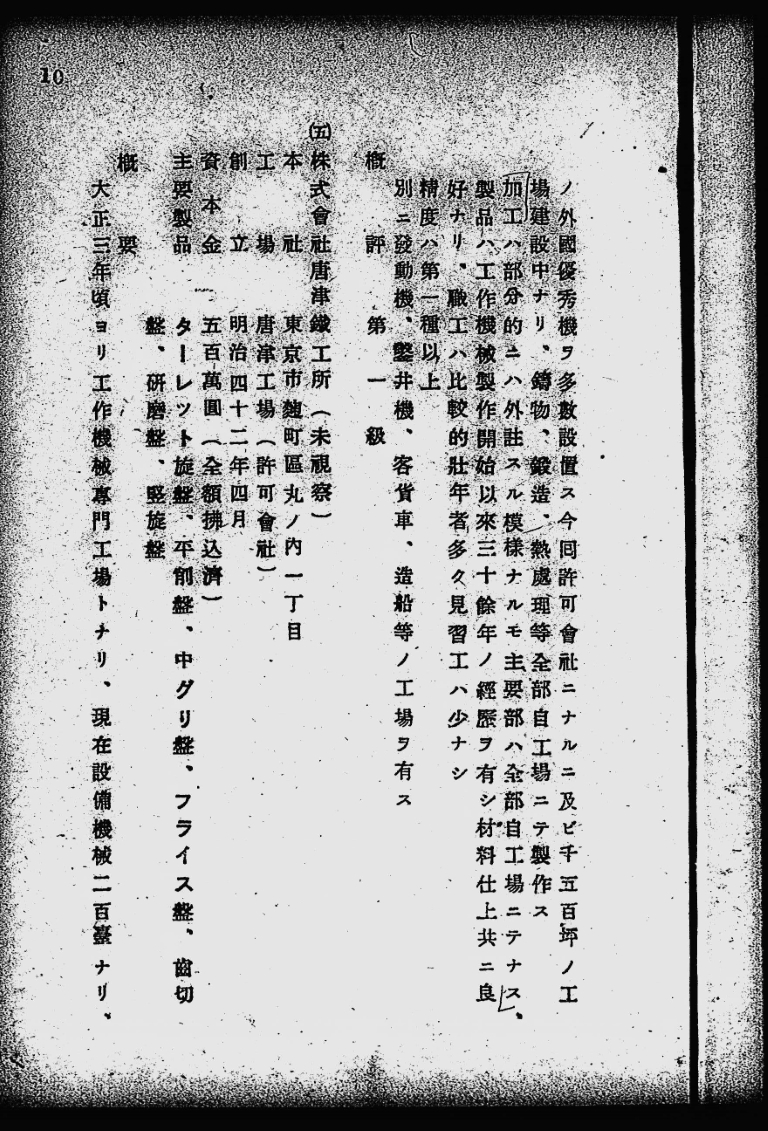 10
ノ外國優秀機ヲ多數設置ス今囘許可會社ニナルニ及ビ千五百坪ノ工
場建設中ナリ、鑄物、鍛造、熱處理等全部自工場ニテ製作ス
加工ハ部分的ニハ外註スル模樣ナルモ主要部ハ全部自工場ニテナス、
製品ハ工作機械製作開始以來三十餘年ノ經歷ヲ有シ材料仕上共ニ良
好ナリ、職工ハ比較的壯年者多ク見習工ハ少ナシ
精度ハ第一種以上
別ニ發動機、鑿井機、客貨車、造船等ノ工場ヲ有ス
概評 第一級
㈤株式會社唐津鐵工所（未視察）
本社 東京市麹町區丸ノ內一丁目
工場 唐津工場（許可會社）
創立 明治四十二年四月
資本金 五百萬圓（全額拂込濟）
主要製品 ターレット旋盤、平削盤、中グリ盤、フライス盤、齒切
盤、研磨盤、竪旋盤
概要
大正三年頃ヨリ工作機械專門工場トナリ、現在設備機械二百臺ナリ、